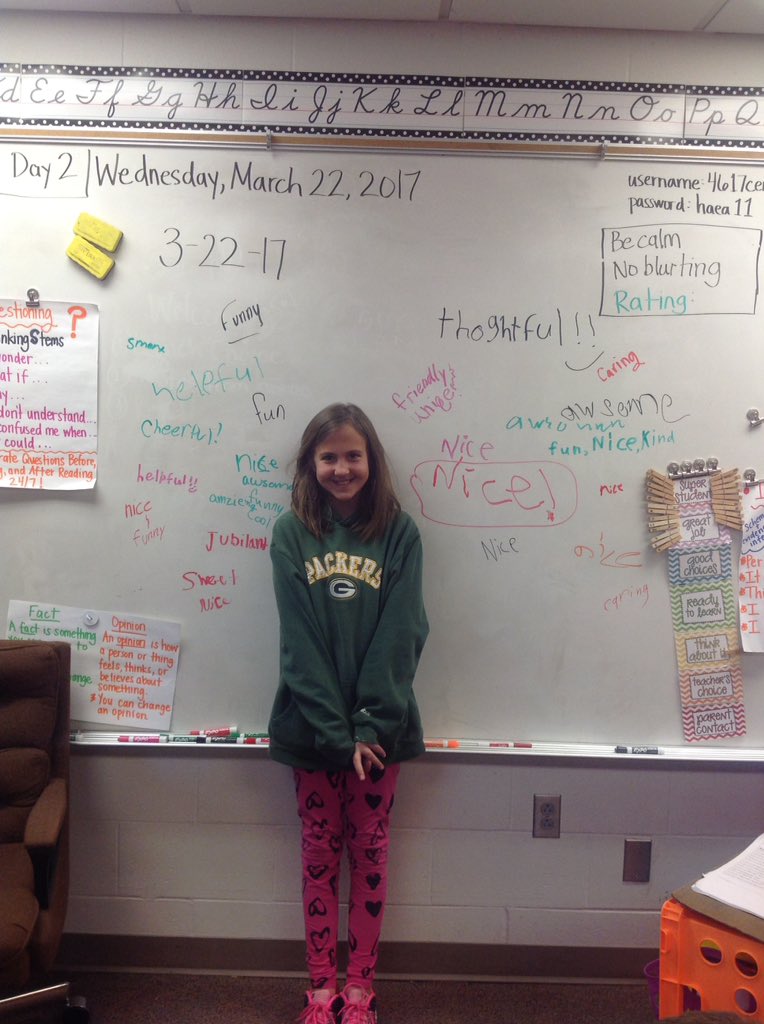 d Ee Ff Gg Hh Ii Jj Kk Ll Mm Nn Oo Pp Q
Day 2 | Wednesday, March 22, 2017
username: 4617cer
password: haea 11
3-22-17
Be calm
No blurting
Rating:
estioning ?
nking Stems
onder...
at if...
y...
don't understand...
confused me when...
could...
rate Questions Before,
g, and After Reading
24/7!
Funny
helpful
fun
Cheerful!
helpful!!
nice
funny
nice
awsome
funny
cool
Jubilant
Sweet
Nice
thoghtful!!
caring
friendly
awsome
fun, Nice, Kind
Nice
Nice!
nice
Nice
caring
PACKERS
G
Super
student
great
job
good
choices
ready
to learn
think
about it
teacher's
choice
parent
contact
Fact
A fact is something
to
ange
Opinion
An opinion is how
a person or thing
feels, thinks, or
believes about
something.
*You can change
an opinion.